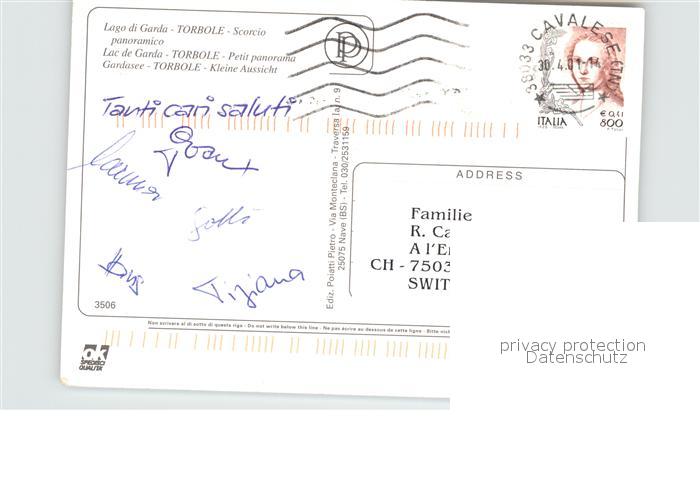 Lago di Garda - TORBOLE - Scorcio
panoramico
Lac de Garda - TORBOLE - Petit panorama
Gardasee - TORBOLE - Kleine Aussicht
38033 CAVALESE (TN)
30.4.01-14
€ 0,41
ITALIA 800
Tanti cari saluti
Tiziana
Ediz. Poiatti Pietro - Via Monteclana - Traversa Ia, n. 9
25075 Nave (BS) - Tel. 030/2531159
ADDRESS
Familie
R. Ca
A l'E
CH - 7503
SWIT
3506
Non scrivere al di sotto di questa riga - Do not write below this line - Ne pas écrire au dessous de cette ligne - Bitte nich
ok
SPEDISCI
QUALITÀ
privacy protection
Datenschutz